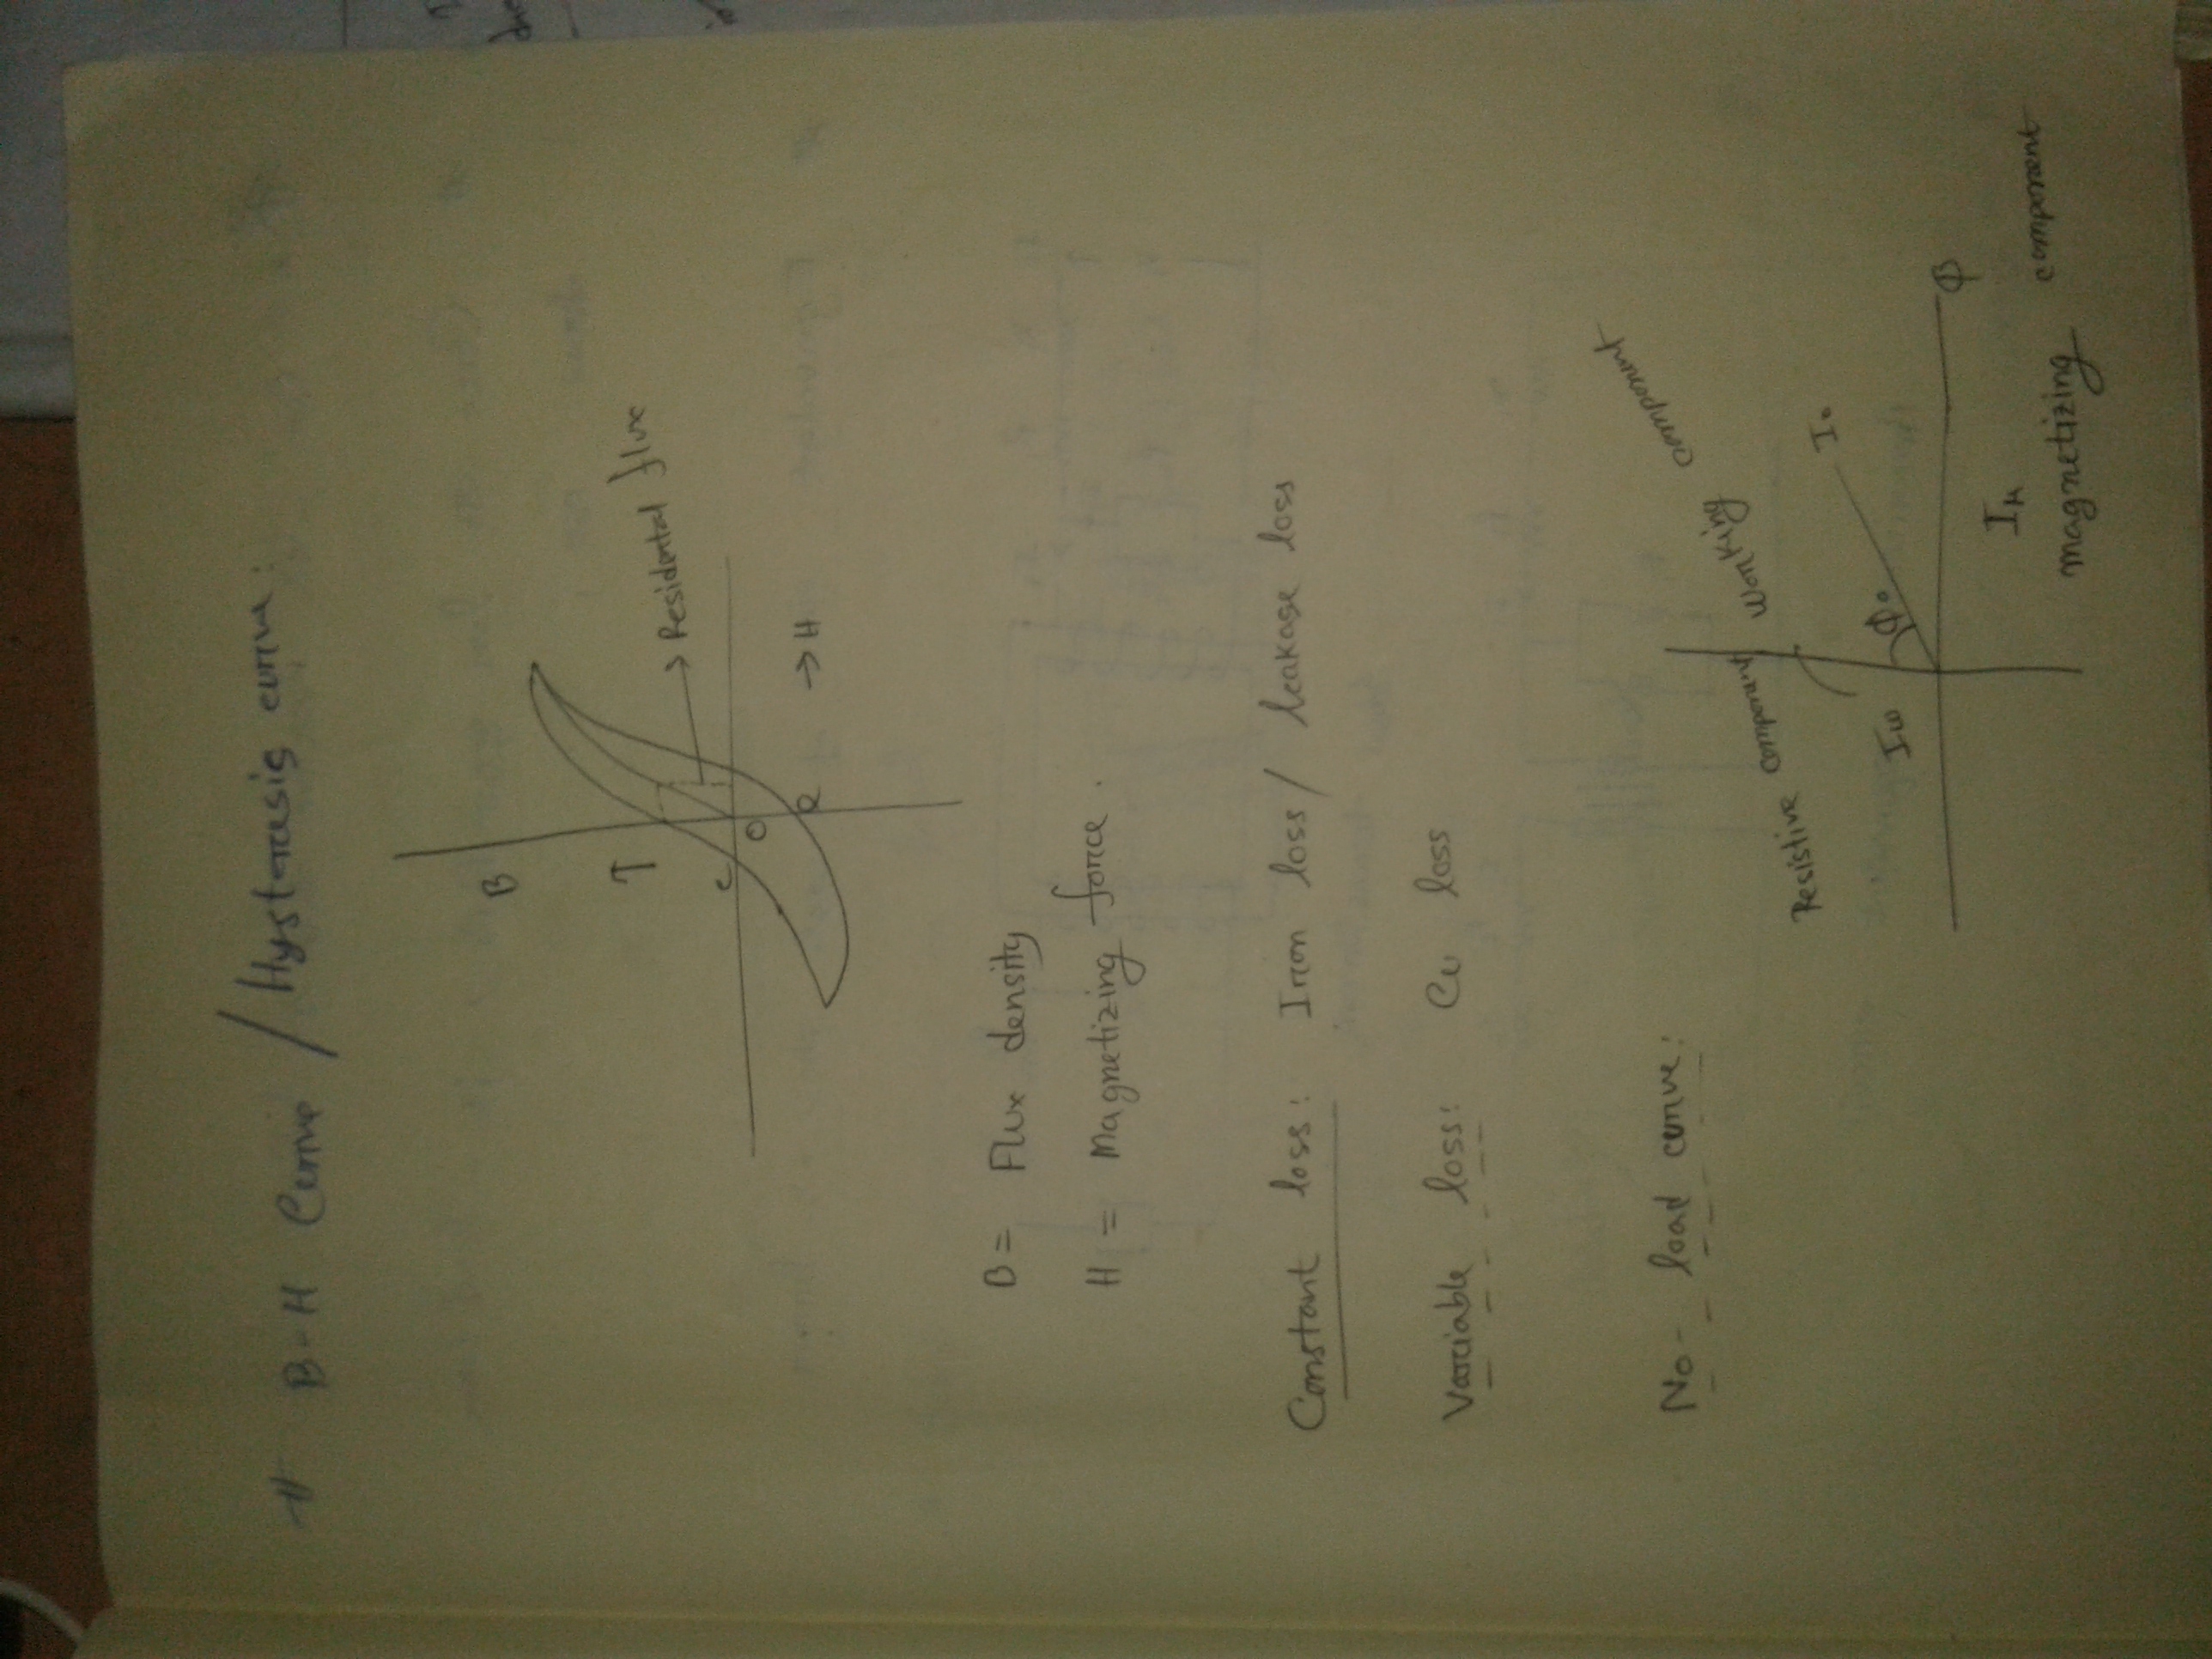 # B-H Curve / Hysterasis curve:
B
↑
→ Residental flux
c
O
R
→ H
B = Flux density
H = Magnetizing force.
Constant loss: Iron loss / leakage loss
Variable loss: Cu loss
No-load curve:
Resistive component
Working component
I₀
Iω
Φ₀
Φ
Iμ
magnetizing component